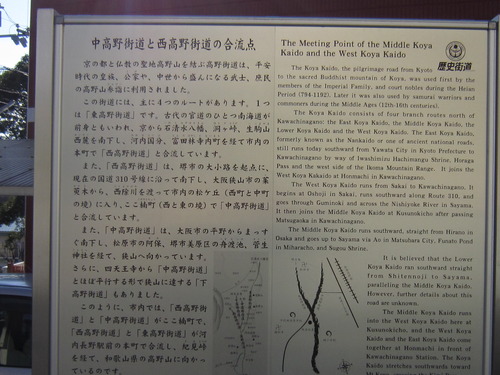 中高野街道と西高野街道の合流点
京の都と高野の聖地高野山を結ぶ高野街道は、平安
時代の皇族、公家や、中世から盛んになる武士、庶民
の高野山参詣に利用されました。
この街道には、主に4つのルートがあります。1つ
は「東高野街道」です。古代の官道のひとつ南海道が
前身ともいわれ、京から石清水八幡、洞ヶ峠、生駒山
西麓を南下し、河内国分、富田林市内町から市内の
本町で「西高野街道」と合流しています。
また、「西高野街道」は、堺市の大小路を起点に、
現在の国道310号線に沿って南下し、大阪狭山市の茱
萸木から、西除川を渡って市内の松ケ丘(西町と中町
の境)に入り、ここ楠町(西と東の境)で「中高野街道」
と合流しています。
また、「中高野街道」は、大阪市の平野からまっす
ぐ南下し、松原市の阿保、堺市美原区の舟渡池、菅生
神社を経て、狭山へ向かっています。
さらに、四天王寺から「中高野街道」
とほぼ平行する形で狭山に達する「下
高野街道」もありました。
このように、市内では、「西高野街
道」と「中高野街道」がここ楠町で、
「西高野街道」と「東高野街道」が河
内長野駅前の本町で合流し、紀見峠
を経て、和歌山県の高野山に向かっ
ているのです。
The Meeting Point of the Middle Koya
Kaido and the West Koya Kaido
歴史街道
The Koya Kaido, the pilgrimage road from Kyoto
to the sacred Buddhist mountain of Koya, was used first by the
members of the Imperial Family, and court nobles during the Heian
Period (794-1192). Later it was also used by samurai warriors and
commoners during the Middle Ages (12th-16th centuries).
The Koya Kaido consists of four branch routes north of
Kawachinagano: the East Koya Kaido, the Middle Koya Kaido, the
Lower Koya Kaido and the West Koya Kaido. The East Koya Kaido,
formerly known as the Nankaido or one of ancient national roads,
still runs today southward from Yawata City in Kyoto Prefecture to
Kawachinagano by way of Iwashimizu Hachimangu Shrine, Horaga
Pass and the west side of the Ikoma Mountain Range. It joins the
West Koya Kakaido at Honmachi in Kawachinagano.
The West Koya Kaido runs from Sakai to Kawachinagano. It
begins at Oshoji in Sakai, runs southward along Route 310, and
goes through Guminoki and across the Nishiyoke River in Sayama.
It then joins the Middle Koya Kaido at Kusunokicho after passing
Matsugaoka in Kawachinagano.
The Middle Koya Kaido runs southward, straight from Hirano in
Osaka and goes up to Sayama via Ao in Matsubara City, Funato Pond
in Miharacho, and Sugou Shrine.
It is believed that the Lower
Koya Kaido ran southward straight
from Shitennouji to Sayama,
paralleling the Middle Koya Kaido.
However, further details about this
road are unknown.
The Middle Koya Kaido runs
into the West Koya Kaido here at
Kusunokicho, and the West Koya
Kaido and the East Koya Kaido come
together at Honmachi in front of
Kawachinagano Station. The Koya
Kaido stretches southwards toward